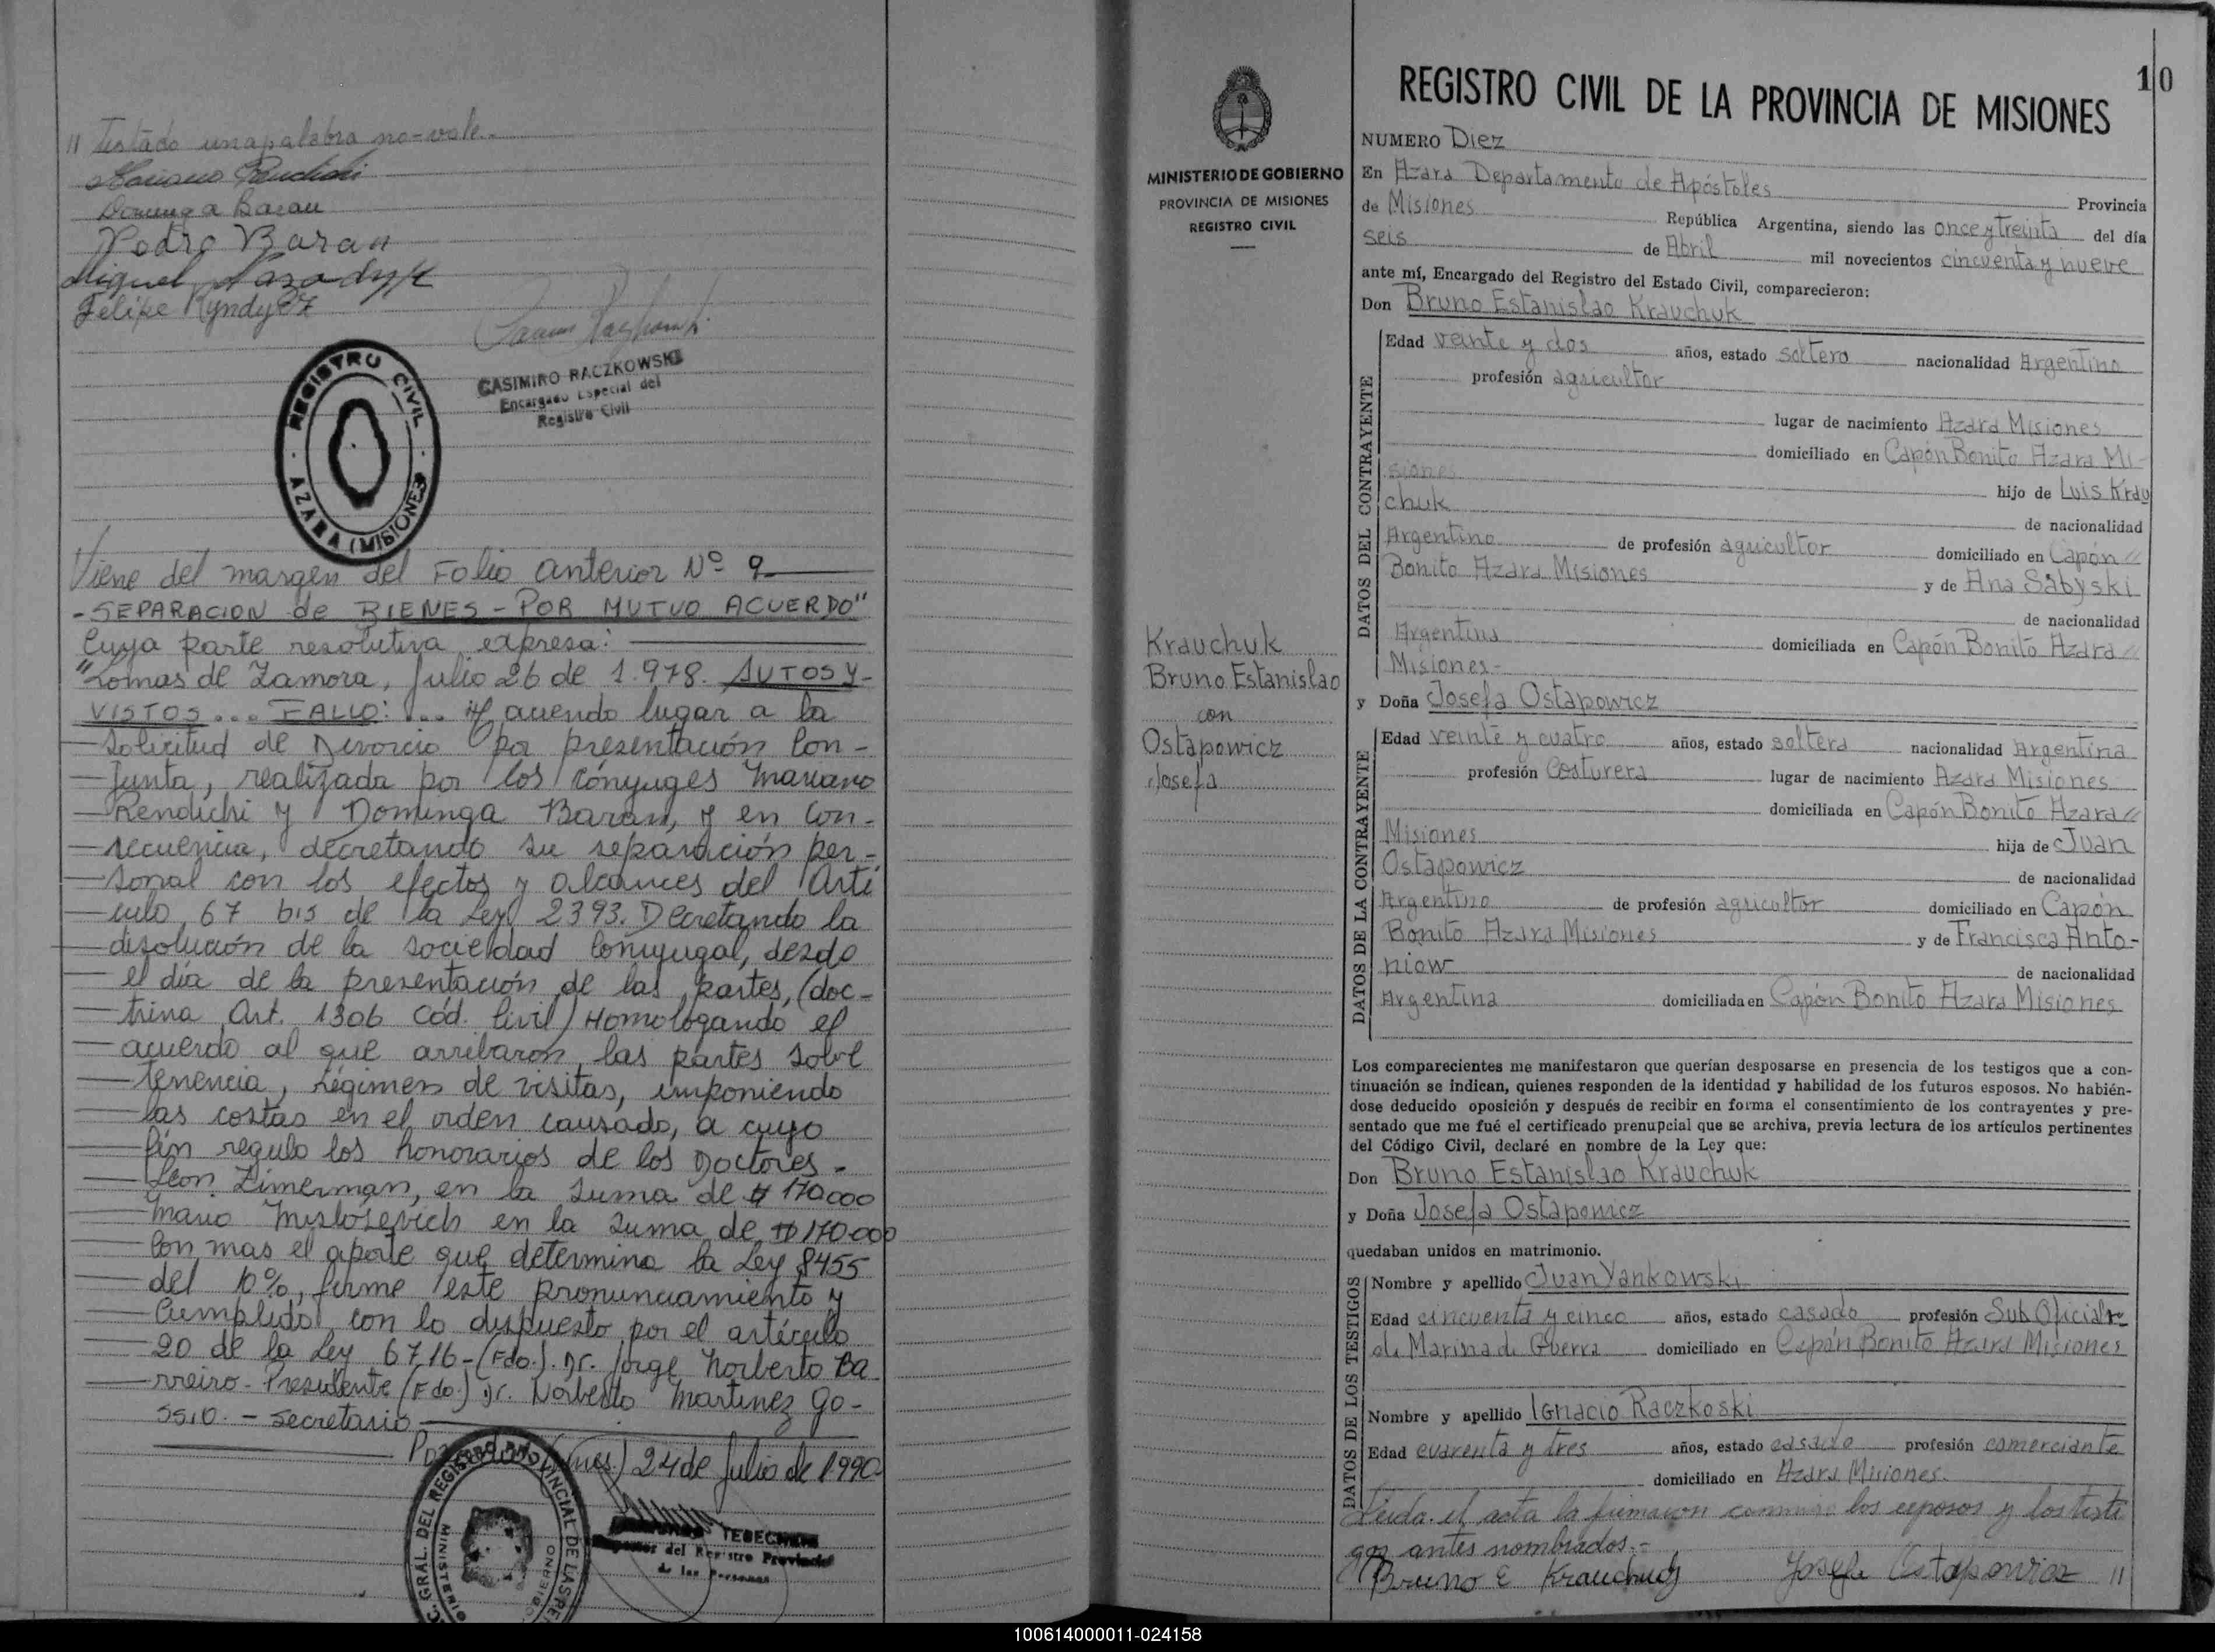 // Testado una palabra no-vale.-
Mariano Rendichi
Dominga Baran
Pedro Baran
Miguel
Felipe
CASIMIRO RACZKOWSKI
Encargado Especial del
Registro Civil
REGISTRO CIVIL
AZARA (MISIONES)
Viene del margen del Folio anterior Nº 9
-SEPARACION de BIENES - POR MUTUO ACUERDO"
Cuya parte resolutiva expresa:
"Lomas de Zamora, Julio 26 de 1.978. AUTOS Y-
VISTOS... FALLO: ... aciendo lugar a la
Solicitud de Divorcio por presentación Con-
Junta, realizada por los cónyuges Mariano
Rendichi y Dominga Baran, y en con-
secuencia, decretando su separación per-
sonal con los efectos y alcances del Arti
culo 67 bis de la Ley 2393. Decretando la
disolución de la sociedad conyugal, desde
el día de la presentación de las partes, (doc-
trina Art. 1306 Cód. Civil) Homologando el
acuerdo al que arribaron las partes sobre
tenencia, régimen de visitas, imponiendo
las costas en el orden causado, a cuyo
fin regulo los honorarios de los Doctores-
León Zimerman, en la suma de $ 170000
Mario en la suma de $ 170000
Con mas el aporte que determina la Ley 8455
del 10%, firme este pronunciamiento y
Cumplido con lo dispuesto por el artículo
20 de la Ley 6716-(Fdo.). Dr. Jorge Norberto Ba
rreiro-Presidente (Fdo.) Dr. Norberto Martinez Go-
ssio.- Secretario
24 de Julio de 1990
del Registro Provincial
de las Personas
10
MINISTERIO DE GOBIERNO
PROVINCIA DE MISIONES
REGISTRO CIVIL
Krauchuk
Bruno Estanislao
con
Ostapowicz
Josefa
REGISTRO CIVIL DE LA PROVINCIA DE MISIONES
NUMERO Diez
En Azara Departamento de Apóstoles Provincia
de Misiones República Argentina, siendo las once y treinta del día
seis de Abril mil novecientos cincuenta y nueve
ante mí, Encargado del Registro del Estado Civil, comparecieron:
Don Bruno Estanislao Krauchuk
DATOS DEL CONTRAYENTE
Edad veinte y dos años, estado soltero nacionalidad Argentino
profesión agricultor
lugar de nacimiento Azara Misiones
domiciliado en Capón Bonito Azara Mi-
siones hijo de Luis Krau
chuk de nacionalidad
Argentino de profesión agricultor domiciliado en Capón //
Bonito Azara Misiones y de Ana Sabyski
de nacionalidad
Argentina domiciliada en Capón Bonito Azara //
Misiones-
y Doña Josefa Ostapowicz
DATOS DE LA CONTRAYENTE
Edad veinte y cuatro años, estado soltera nacionalidad Argentina
profesión Costurera lugar de nacimiento Azara Misiones
domiciliada en Capón Bonito Azara //
Misiones hija de Juan
Ostapowicz de nacionalidad
Argentino de profesión agricultor domiciliado en Capón
Bonito Azara Misiones y de Francisca Anto-
niow de nacionalidad
Argentina domiciliada en Capón Bonito Azara Misiones
Los comparecientes me manifestaron que querían desposarse en presencia de los testigos que a con-
tinuación se indican, quienes responden de la identidad y habilidad de los futuros esposos. No habién-
dose deducido oposición y después de recibir en forma el consentimiento de los contrayentes y pre-
sentado que me fué el certificado prenupcial que se archiva, previa lectura de los artículos pertinentes
del Código Civil, declaré en nombre de la Ley que:
Don Bruno Estanislao Krauchuk
y Doña Josefa Ostapowicz
quedaban unidos en matrimonio.
DATOS DE LOS TESTIGOS
Nombre y apellido Juan Yankowski
Edad cincuenta y cinco años, estado casado profesión Sub Oficial
de Marina de Guerra domiciliado en Capón Bonito Azara Misiones
Nombre y apellido Ignacio Raczkoski
Edad cuarenta y tres años, estado casado profesión comerciante
domiciliado en Azara Misiones.
Leida el acta la firmaron conmigo los esposos y los testi
gos antes nombrados.-
Bruno E Krauchuk Josefa Ostapowicz //
100614000011-024158